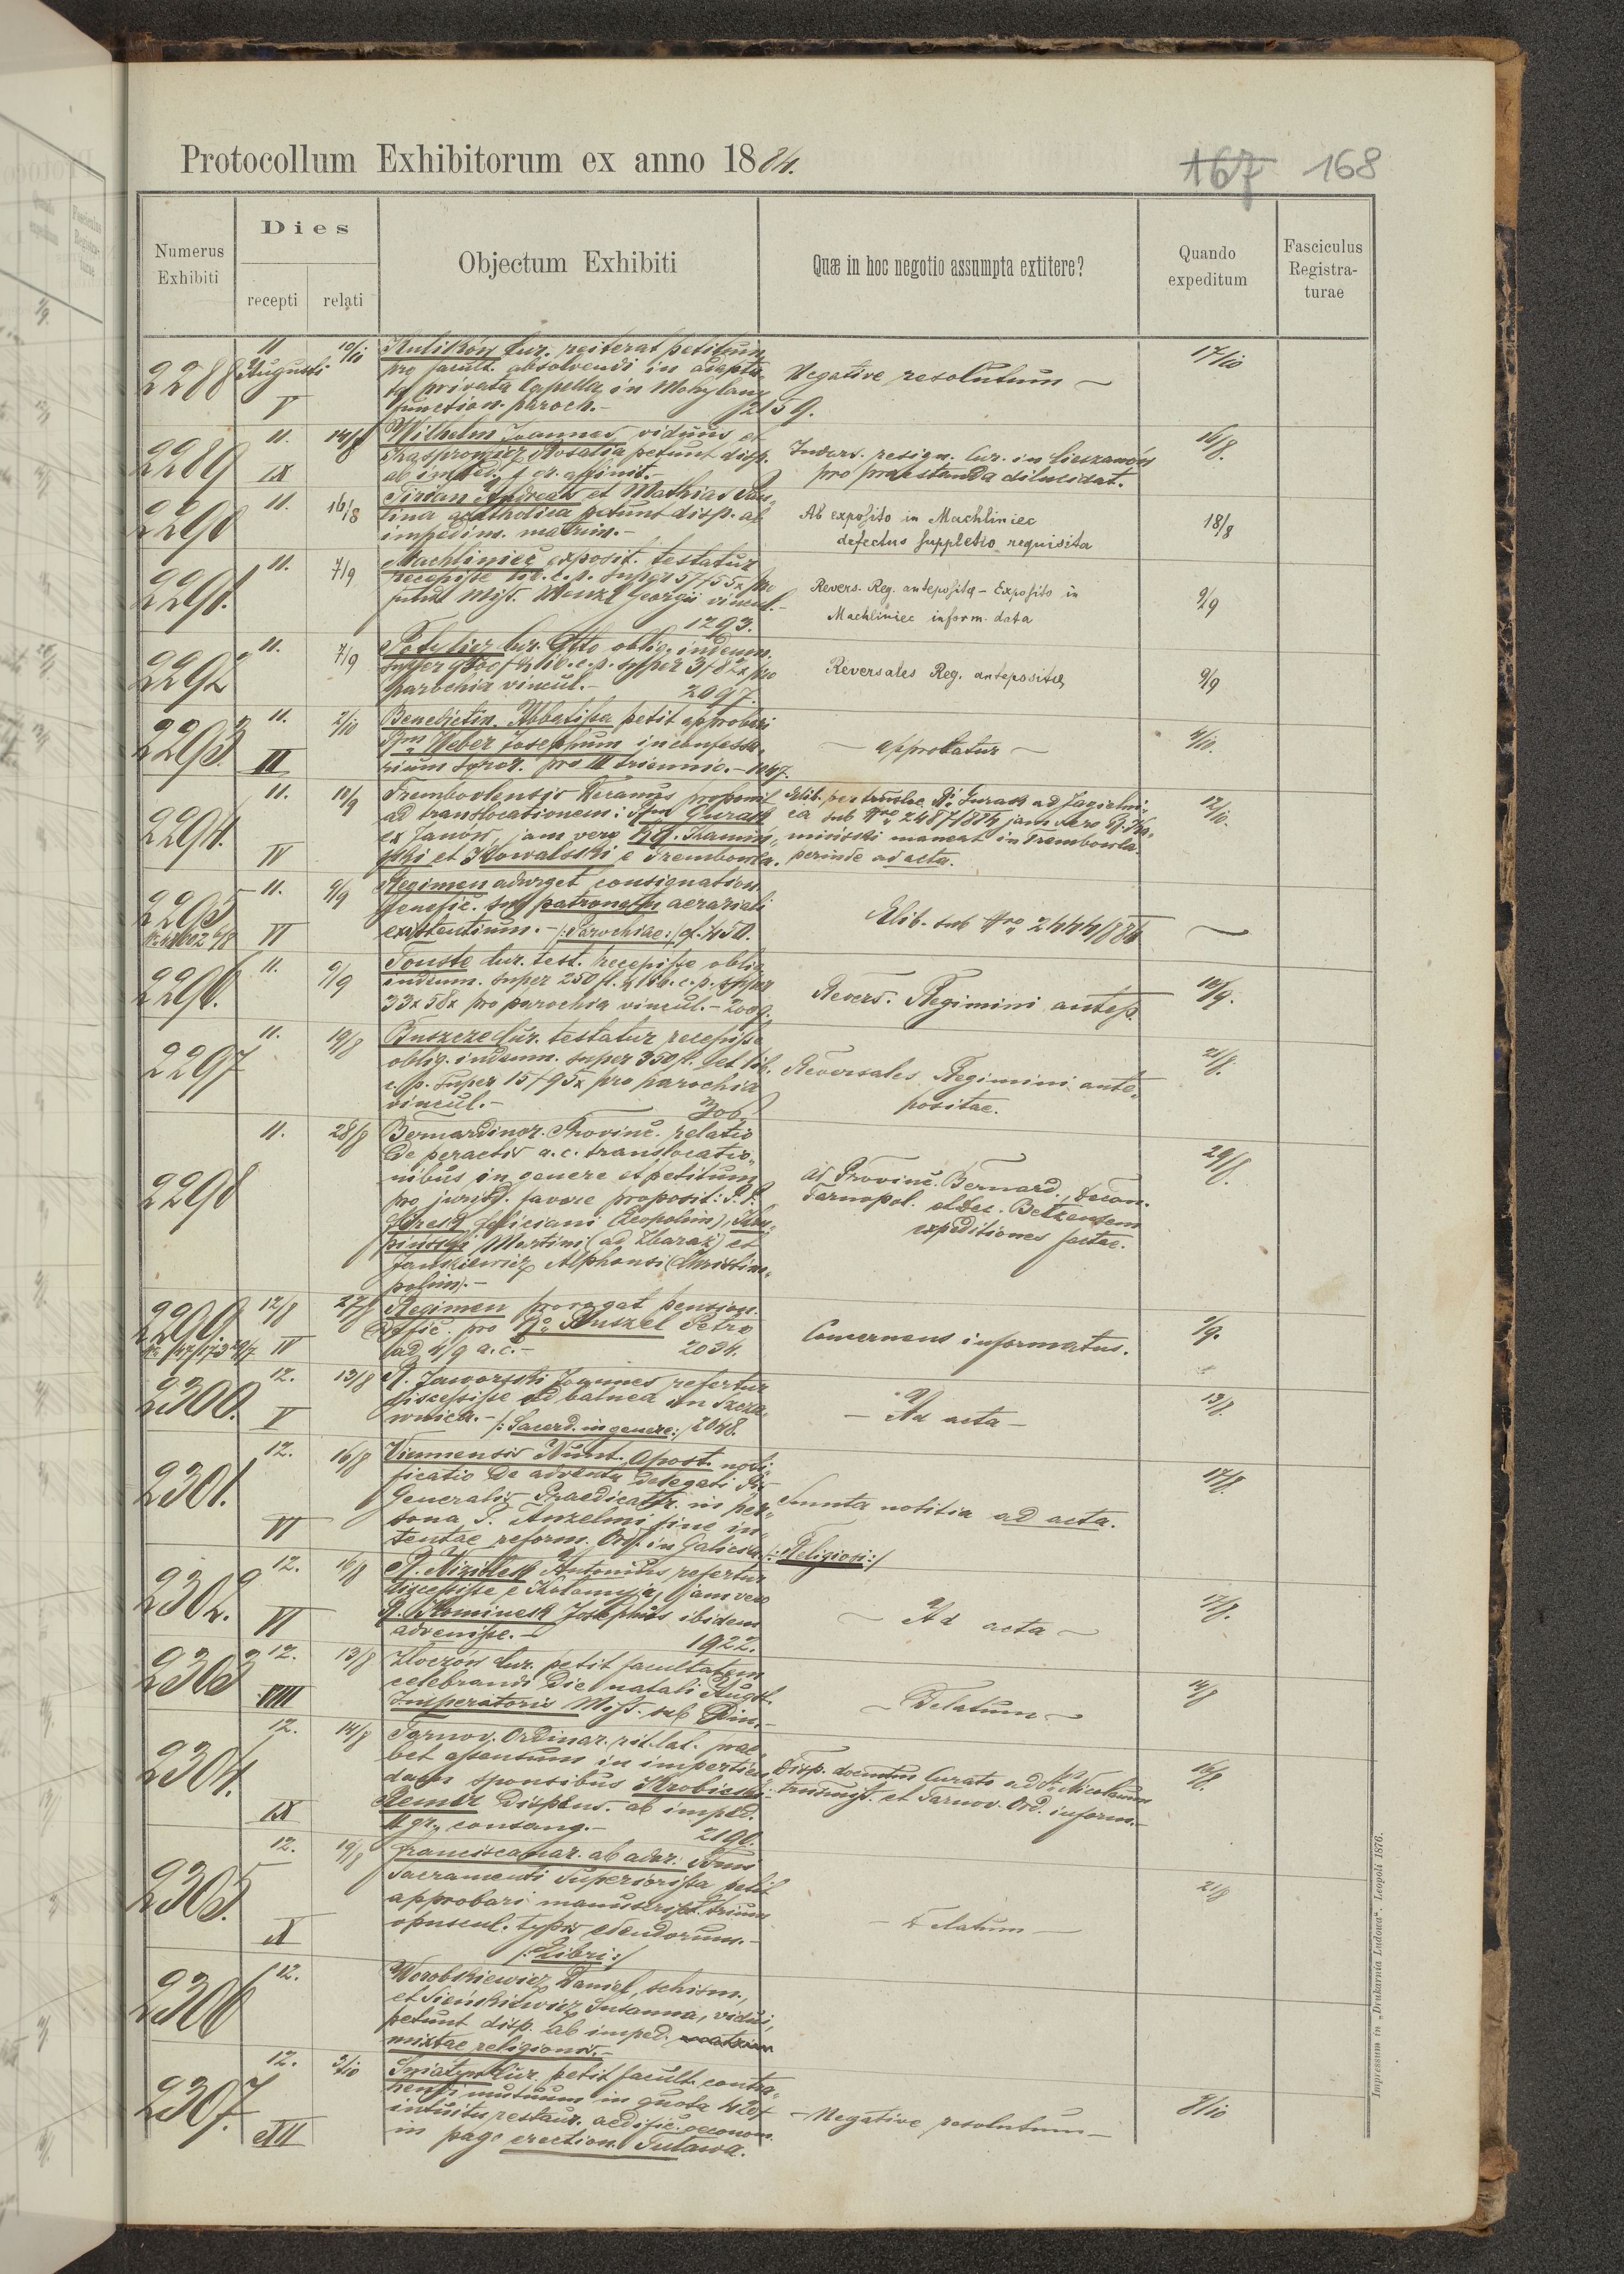 Protocollum Exhibitorum ex anno 1884.
167 168
Numerus Exhibiti
Dies
recepti
relati
Objectum Exhibiti
Quæ in hoc negotio assumpta extitere?
Quando expeditum
Fasciculus Registraturae
2288
11 Augusti
V
10/10
Kulików Cur. reiterat petitum
pro facult. absolvendi in adapta-
ta privata Capella in
function. paroch.-
2159.
Negative resolutum
17/10
2289
11.
IX
14/8
Wilhelm Joannes, viduus et
Kasprowicz Rosalia petunt disp.
ab imped. 1 gr. affinit.-
Indors. resign. Cur. in Cieszanów
pro praestanda dilucidat.
16/8.
2290
11.
16/8
Andreas et Mathias
acatholica petunt disp. ab
impedim. matrim.-
Ab exposito in Machliniec
defectus suppletio requisita
18/8
2291.
11.
7/9
Machliniec exposit. testatur
recepisse lib. c.p. super 57f 55x pro
fund. Miss. Georgii vincul.-
1293.
Revers. Reg. anteposita - Exposito in
Machliniec inform. data
9/9
2292
11.
7/9
Potylicz Cur. Otto oblig. indemn.
super lib. c.p. super 3f 82x pro
parochia vincul.-
2097.
Reversales Reg. antepositae
9/9
2293
11.
III
2/10
Benedictin. Abbatissa petit approbari
Weber Josephum in confessa-
rium pro III triennio.- 1047.
- approbatur -
4/10.
2294.
11.
IV
10/9
Trembovlensis Decanus proponit
ad translocationem: Gurask
ex Janów, jam vero RR. Kamiń-
ski et Kowalski e Trembowla.
Elib. Gurask ad Jagielni-
ca sub Nro 2487/884 jam vero R. Ka-
minski maneat in Trembowla
perinde ad acta.
12/10.
2295
11.
VI
9/9
Regimen adurget consignation.
benefic. sub patronatu aerariali
existentium.- /:Parochiae:/ of. 450.
Elib. sub Nro 2444/884
2296.
11.
9/9
Touste Cur. test. recepisse oblig.
indemn. super 250 fl. et lib. c.p. super
33x 58x pro parochia vincul.- 2009.
Revers. Regimini antep.
10/9.
2297
11.
19/8
Buszcze Cur. testatur recepisse
oblig. indemn. super 350 fl. et lib.
c.p. super 15f 95x pro parochia
vincul.-
Job.
Reversales Regimini ante-
positae.
21/8.
2298
11.
28/8
Bernardinor. Provinc. relatio
de peractis a.c. translocatio-
nibus in genere et petitum
pro jurisd. favore proposit: P.P.
Feliciani (Leopolim),
Martini (ad Zbaraż) et
Jankiewicz Alphonsi (Christino-
polim).-
Ad Provinc. Bernard., Decan.
Tarnopol. et Dec. Belzensem
expeditiones factae.
29/8.
2299
12/8
IV
27/8
Regimen prorogat pension.
Petro
ad 4/9 a.c.-
2034.
Concernens informatus.
1/9.
2300.
12.
V
13/8
R. Jaworski Joannes refertur
discessisse ad balnea in Szcza-
wnica.-
/:Sacerd. in genere:/ 2048.
- Ad acta -
13/8.
2301.
12.
VI
16/8
Viennensis Nunt. Apost. noti-
ficatio de adventu delegati
Generalis Praedicator. in per-
sona P. Anzelmi fine in-
tentae reform. Ord. in Galicia.
/:Religiosi:/
Sumta notitia ad acta.
17/8.
2302.
12.
VI
16/8
R. Antonius refertur
discessisse e Kołomyja, jam vero
R. Kominek Josephus ibidem
advenisse.-
1922.
- Ad acta -
17/8.
2303
12.
VIII
13/8
Złoczów Cur. petit facultatem
celebrandi die natali August.
Imperatoris Miss. sub Divo.-
- Delatum -
14/8
2304.
12.
IX
14/8
Tarnov. Ordinar. rit. lat. prae-
bet assensum in impertien-
dam sponsibus
dispens. ab imped.
II gr. consang.-
2190.
Disp. documtum Curato ad St. Nicolaum
transmist. et Tarnov. Ord. inform.-
16/8.
2305.
12.
X
19/8
Franciscanar. ab ador. Ssmi
Sacramenti Superiorissa petit
approbari manuscript. trium
opuscul. typis edendorum.-
/:Libri:/
- Delatum -
21/8
2306
12.
Worobkiewicz Daniel, schism.,
et Sieńkiewicz Susanna, vidui,
petunt disp. ab imped.
mixtae religionis.-
2307.
12.
XII
3/10
Sniatyn Cur. petit facult. contra-
hendi mutuum in quota 420f
intuitu restaur. aedific. oeconom.
in pago erection. Tuława.
- Negative resolutum -
8/10
Impressum in „Drukarnia Ludowa“, Leopoli 1876.